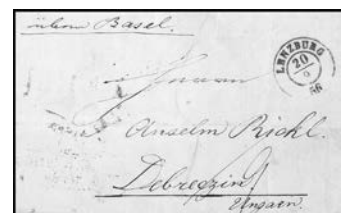 über Basel.
LENZBURG
20
9
56
Herrn
Anselm Rickl.
Debreczin
Ungarn.